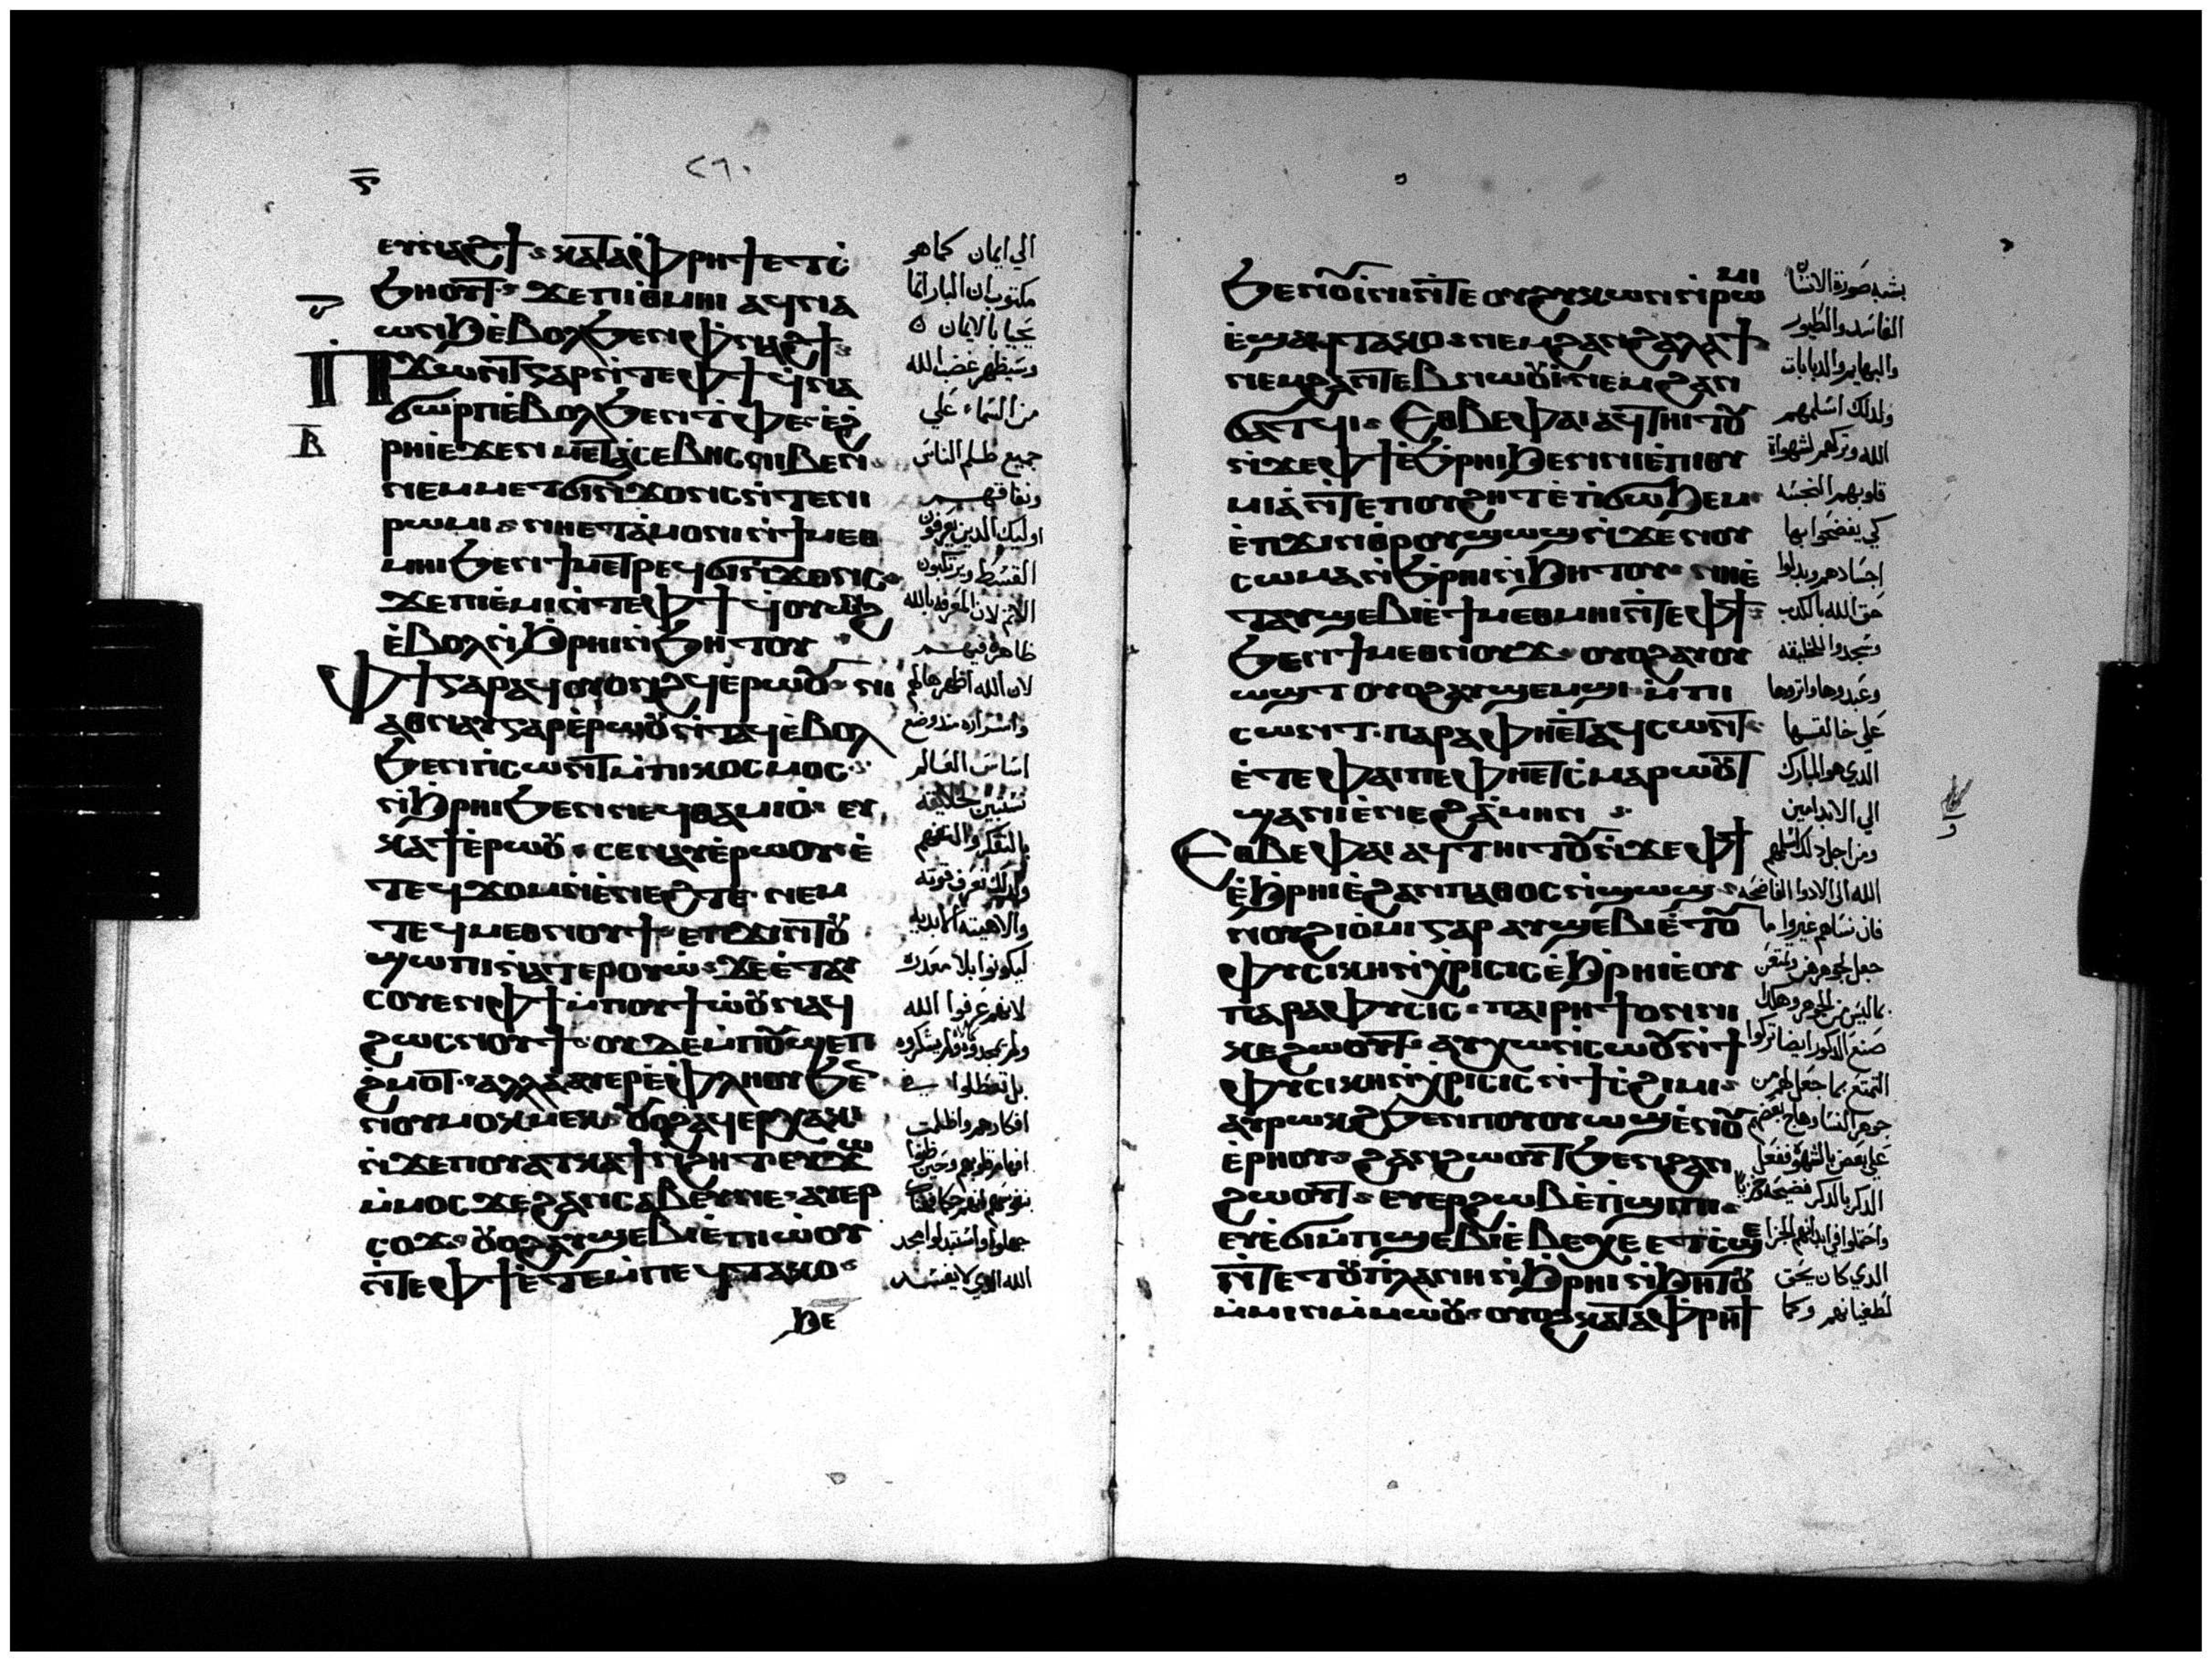 ⲋ̅
٢٦٠
ⲉⲩⲛⲁϩϯ ⲕⲁⲧⲁⲫⲣⲏϯ ⲉⲧⲥ̀
ϧⲏⲟⲩⲧ ϫⲉⲡⲓⲑⲙⲏⲓ ⲁϥⲛⲁ
ⲱⲛϧ ⲉ̀ⲃⲟⲗϧⲉⲛⲫ̀ⲛⲁϩϯ
ⲡ̀ϫⲱⲛⲧⲅⲁⲣⲛ̀ⲧⲉⲫϯ ϥ̀ⲛⲁ
ϭⲱⲣⲡⲉ̀ⲃⲟⲗϧⲉⲛⲧ̀ⲫⲉ ⲉ̀ϩ̀
ⲣⲏⲓⲉϫⲉⲛ ⲙⲉⲧⲁⲥⲉⲃⲏⲥⲛⲓⲃⲉⲛ
ⲛⲉⲙⲙⲉⲧϭⲓⲛ̀ϫⲟⲛⲥⲛ̀ⲧⲉⲛⲓ
ⲣⲱⲙⲓ ⲛⲏⲉⲧⲁ̀ⲙⲟⲛⲓⲛ̀ϯⲙⲉⲑ
ⲙⲏⲓϧⲉⲛϯⲙⲉⲧⲣⲉϥϭⲓⲛ̀ϫⲟⲛⲥ
ϫⲉⲡⲉ̀ⲙⲓⲛ̀ⲧⲉⲫϯ ϥ̀ⲟⲩⲱⲛϩ
ⲉ̀ⲃⲟⲗⲛ̀ϧⲣⲏⲓⲛ̀ϧⲏⲧⲟⲩ
ⲫϯⲅⲁⲣⲁϥⲟⲩⲟⲛϩϥⲉ̀ⲣⲱⲟⲩ ⲛⲓ
ⲁⲑⲛⲁⲩⲅⲁⲣⲉ̀ⲣⲱⲟⲩⲛ̀ⲧⲁϥⲉ̀ⲃⲟⲗ
ϧⲉⲛⲡ̀ⲥⲱⲛⲧⲙ̀ⲡⲓⲕⲟⲥⲙⲟⲥ
ⲛ̀ϧⲣⲏⲓϧⲉⲛⲛⲉϥⲑⲁⲙⲓⲟ̀ ⲉⲩ
ⲕⲁϯⲉ̀ⲣⲱⲟⲩ ⲥⲉⲛⲁⲩⲉ̀ⲣⲱⲟⲩ ⲉ̀
ⲧⲉϥϫⲟⲙⲛ̀ⲉ̀ⲛⲉϩⲧⲉ ⲛⲉⲙ
ⲧⲉϥⲙⲉⲑⲛⲟⲩϯ ⲉⲡϫⲓⲛⲧⲟⲩ
ϣⲱⲡⲓⲛ̀ⲁⲧⲉⲣⲟⲩⲱ̀ ϫⲉⲉ̀ⲧⲁⲩ
ⲥⲟⲩⲉⲛⲫϯⲙ̀ⲡⲟⲩϯⲱ̀ⲟⲩⲛⲁϥ
ϩⲱⲥⲛⲟⲩϯ ⲟⲩⲇⲉⲙ̀ⲡⲟⲩϣⲉⲡ
ϩ̀ⲙⲟⲧ ⲁⲗⲗⲁⲁⲩⲉⲣⲉ̀ⲫⲗⲏⲟⲩϧⲉⲛ
ⲛⲟⲩⲙⲟⲕⲙⲉⲕ ⲟⲩⲟϩⲁϥⲉⲣⲭⲁⲕⲓ
ⲛ̀ϫⲉⲡⲟⲩⲁⲧⲕⲁϯⲛ̀ϩⲏⲧ ⲉⲩϫⲱ
ⲙ̀ⲙⲟⲥ ϫⲉϩⲁⲛⲥⲁⲃⲉⲩⲛⲉ ⲁⲩⲉⲣ
ⲥⲟϫ ⲟⲩⲟϩⲁⲩϣⲉⲃⲓⲉ̀ⲡⲱ̀ⲟⲩ
ⲛ̀ⲧⲉⲫϯⲉ̀ⲧⲉⲙ̀ⲡⲉϥⲧⲁⲕⲟ
ϧⲉ
ⲃ̅
الي ايمان كما هو
مكتوب ان البار انما
يحيا بالايمان
وسيظهر غضب الله
من السماء علي
جميع ظلم الناس
ونفاقهم
اوليك الدين يعرفون
القسط ويرتكبون
الاثم لان المعرفه بالله
ظاهرة فيهم
لان الله اظهرها لهم
واسراره مند وضع
اساس العالم
تستبين لخلايقه
بالتفكر والتفهم
وكدلك تعرف قوته
والاهيته الابديه
ليكونوا بلا معدره
لانهم عرفوا الله
بل تعطلوا في
افكارهم واظلمت
جهلوا واستبدلوا مجد
الله الدي لا يفسد
ϧⲉⲛⲟⲩⲓ̀ⲛⲓⲛ̀ⲧⲉⲟⲩϩⲩⲕⲱⲛⲛ̀ⲣⲱⲙⲓ
ⲉ̀ϣⲁϥⲧⲁⲕⲟ ⲛⲉⲙϩⲁⲛϩⲁⲗⲁϯ
ⲛⲉⲙϩⲁⲛⲧⲉⲃⲛⲱⲟⲩⲓ̀ ⲛⲉⲙϩⲁⲛ
ϭⲁⲧϥⲓ ⲉⲑⲃⲉⲫⲁⲓ ⲁϥⲧⲏⲓⲧⲟⲩ
ⲛ̀ϫⲉⲫϯⲉ̀ϧ̀ⲣⲏⲓϧⲉⲛⲛⲓⲉ̀ⲡⲓⲑⲩ
ⲙⲓⲁ̀ⲛ̀ⲧⲉⲡⲟⲩϩⲏⲧ ⲉ̀ⲡ̀ϭⲱϧⲉⲙ
ⲉ̀ⲡϫⲓⲛⲑ̀ⲣⲟⲩϣⲱϣⲛ̀ϫⲉⲛⲟⲩ
ⲥⲱⲙⲁⲛ̀ϧ̀ⲣⲏⲓⲛ̀ϧⲏⲧⲟⲩ ⲛⲏⲉ̀
ⲧⲁⲩϣⲉⲃⲓⲉ̀ϯⲙⲉⲑⲙⲏⲓⲛ̀ⲧⲉⲫϯ
ϧⲉⲛϯⲙⲉⲑⲛⲟⲩϫ ⲟⲩⲟϩⲁⲩⲟⲩ
ⲱϣⲧ ⲟⲩⲟϩⲁⲩϣⲉⲙϣⲓ ⲙ̀ⲡⲓ
ⲥⲱⲛⲧ ⲡⲁⲣⲁⲫⲏⲉⲧⲁϥⲥⲱⲛⲧ
ⲉ̀ⲧⲉⲫⲁⲓⲡⲉⲫⲏⲉⲧⲥ̀ⲙⲁⲣⲱⲟⲩⲧ
ϣⲁⲛⲓⲉ̀ⲛⲉϩ ⲁ̀ⲙⲏⲛ
ⲉⲑⲃⲉⲫⲁⲓ ⲁϥⲧⲏⲓⲧⲟⲩⲛ̀ϫⲉⲫϯ
ⲉ̀ϧ̀ⲣⲏⲓⲉ̀ϩⲁⲛⲡⲁⲑⲟⲥⲛ̀ϣⲱϣ
ⲛⲟⲩϩⲓⲟ̀ⲙⲓⲅⲁⲣ ⲁⲩϣⲉⲃⲓⲉ̀ⲧⲟⲩ
ⲫⲩⲥⲓⲕⲏⲛ̀ⲭⲣⲓⲥⲓⲥⲉ̀ϧ̀ⲣⲏⲓⲉ̀ⲟⲩ
ⲡⲁⲣⲁⲫⲩⲥⲓⲥ ⲡⲁⲓⲣⲏϯⲟⲛⲛⲓ
ⲕⲉϩⲱⲟⲩⲧ ⲁⲩⲭⲱⲛ̀ⲥⲱⲟⲩⲛ̀ϯ
ⲫⲩⲥⲓⲕⲏⲛ̀ⲭⲣⲓⲥⲓⲥ ⲛ̀ϯⲥ̀ϩⲓⲙⲓ
ⲁⲩⲣⲱⲕϩϧⲉⲛⲡⲟⲩⲟⲩⲱϣⲉ̀ⲛⲟⲩ
ⲉ̀ⲣⲏⲟⲩ ϩⲁⲛϩⲱⲟⲩⲧϧⲉⲛϩⲁⲛ
ϩⲱⲟⲩⲧ ⲉⲩⲉⲣϩⲱⲃⲉ̀ⲡ̀ϣⲓⲡⲓ
ⲉⲩⲉ̀ϭⲓⲙ̀ⲡϣⲉⲃⲓⲉ̀ⲃⲉⲭⲉ ⲉⲧⲥ̀ϣⲉ
ⲛ̀ⲧⲉⲧⲟⲩⲡ̀ⲗⲁⲛⲏⲛ̀ϧⲣⲏⲓⲛ̀ϧⲏⲧⲟⲩ
ⲙ̀ⲙⲓⲛⲙ̀ⲙⲱⲟⲩ ⲟⲩⲟϩⲕⲁⲧⲁⲫⲣⲏϯ
بشبه صورة الانسان
الفاسد والطيور
والبهايم والدبابات
ولدلك اسلمهم
الله وتركهم لشهواة
قلوبهم النجسه
كي يفضحوا بها
اجسادهم وبدلوا
حق الله بالكدب
وسجدوا للخليقه
وعبدوها واتروها
علي خالقها
الدي هو المبارك
الي الابد امين
ومن اجل دلك اسلمهم
الله الى الادوا الفاضحه
فان نساهم غيروا ما
صنع الدكور ايضا تركوا
الدي كان يحق
لطغيانهم وكما